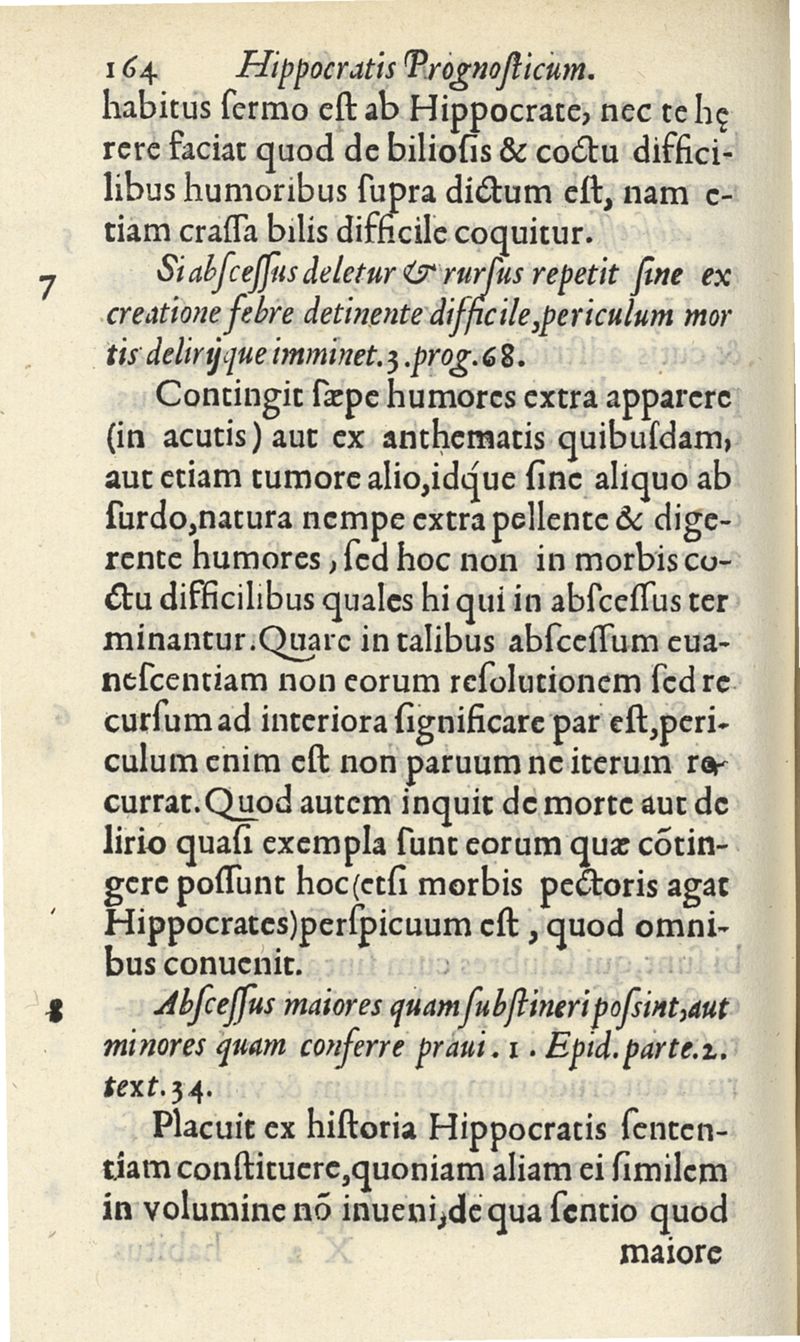 164 Hippocratis Prognoſticum.
habitus ſermo eſt ab Hippocrate, nec te hę
rere faciat quod de bilioſis & coctu diffici-
libus humoribus ſupra dictum eſt, nam e-
tiam craſſa bilis difficile coquitur.
7 Si abſceſſus deletur & rurſus repetit ſine ex
creatione febre detinente difficile, periculum mor
tis delirijque imminet. 3. prog. 68.
Contingit ſæpe humores extra apparere
(in acutis) aut ex anthematis quibuſdam,
aut etiam tumore alio, idq́ue ſine aliquo ab
ſurdo, natura nempe extra pellente & dige-
rente humores, ſed hoc non in morbis co-
ctu difficilibus quales hi qui in abſceſſus ter
minantur. Quare in talibus abſceſſum eua-
neſcentiam non eorum reſolutionem ſed re
curſum ad interiora ſignificare par eſt, peri-
culum enim eſt non paruum ne iterum re-
currat. Quod autem inquit de morte aut de
lirio quaſi exempla ſunt eorum quæ cõtin-
gere poſſunt hoc (etſi morbis pectoris agat
Hippocrates) perſpicuum eſt, quod omni-
bus conuenit.
8 Abſceſſus maiores quam ſubſtineri poſsint, aut
minores quam conferre praui. 1. Epid. parte. 2.
text. 34.
Placuit ex hiſtoria Hippocratis ſenten-
tiam conſtituere, quoniam aliam ei ſimilem
in volumine nõ inueni, de qua ſentio quod
maiore